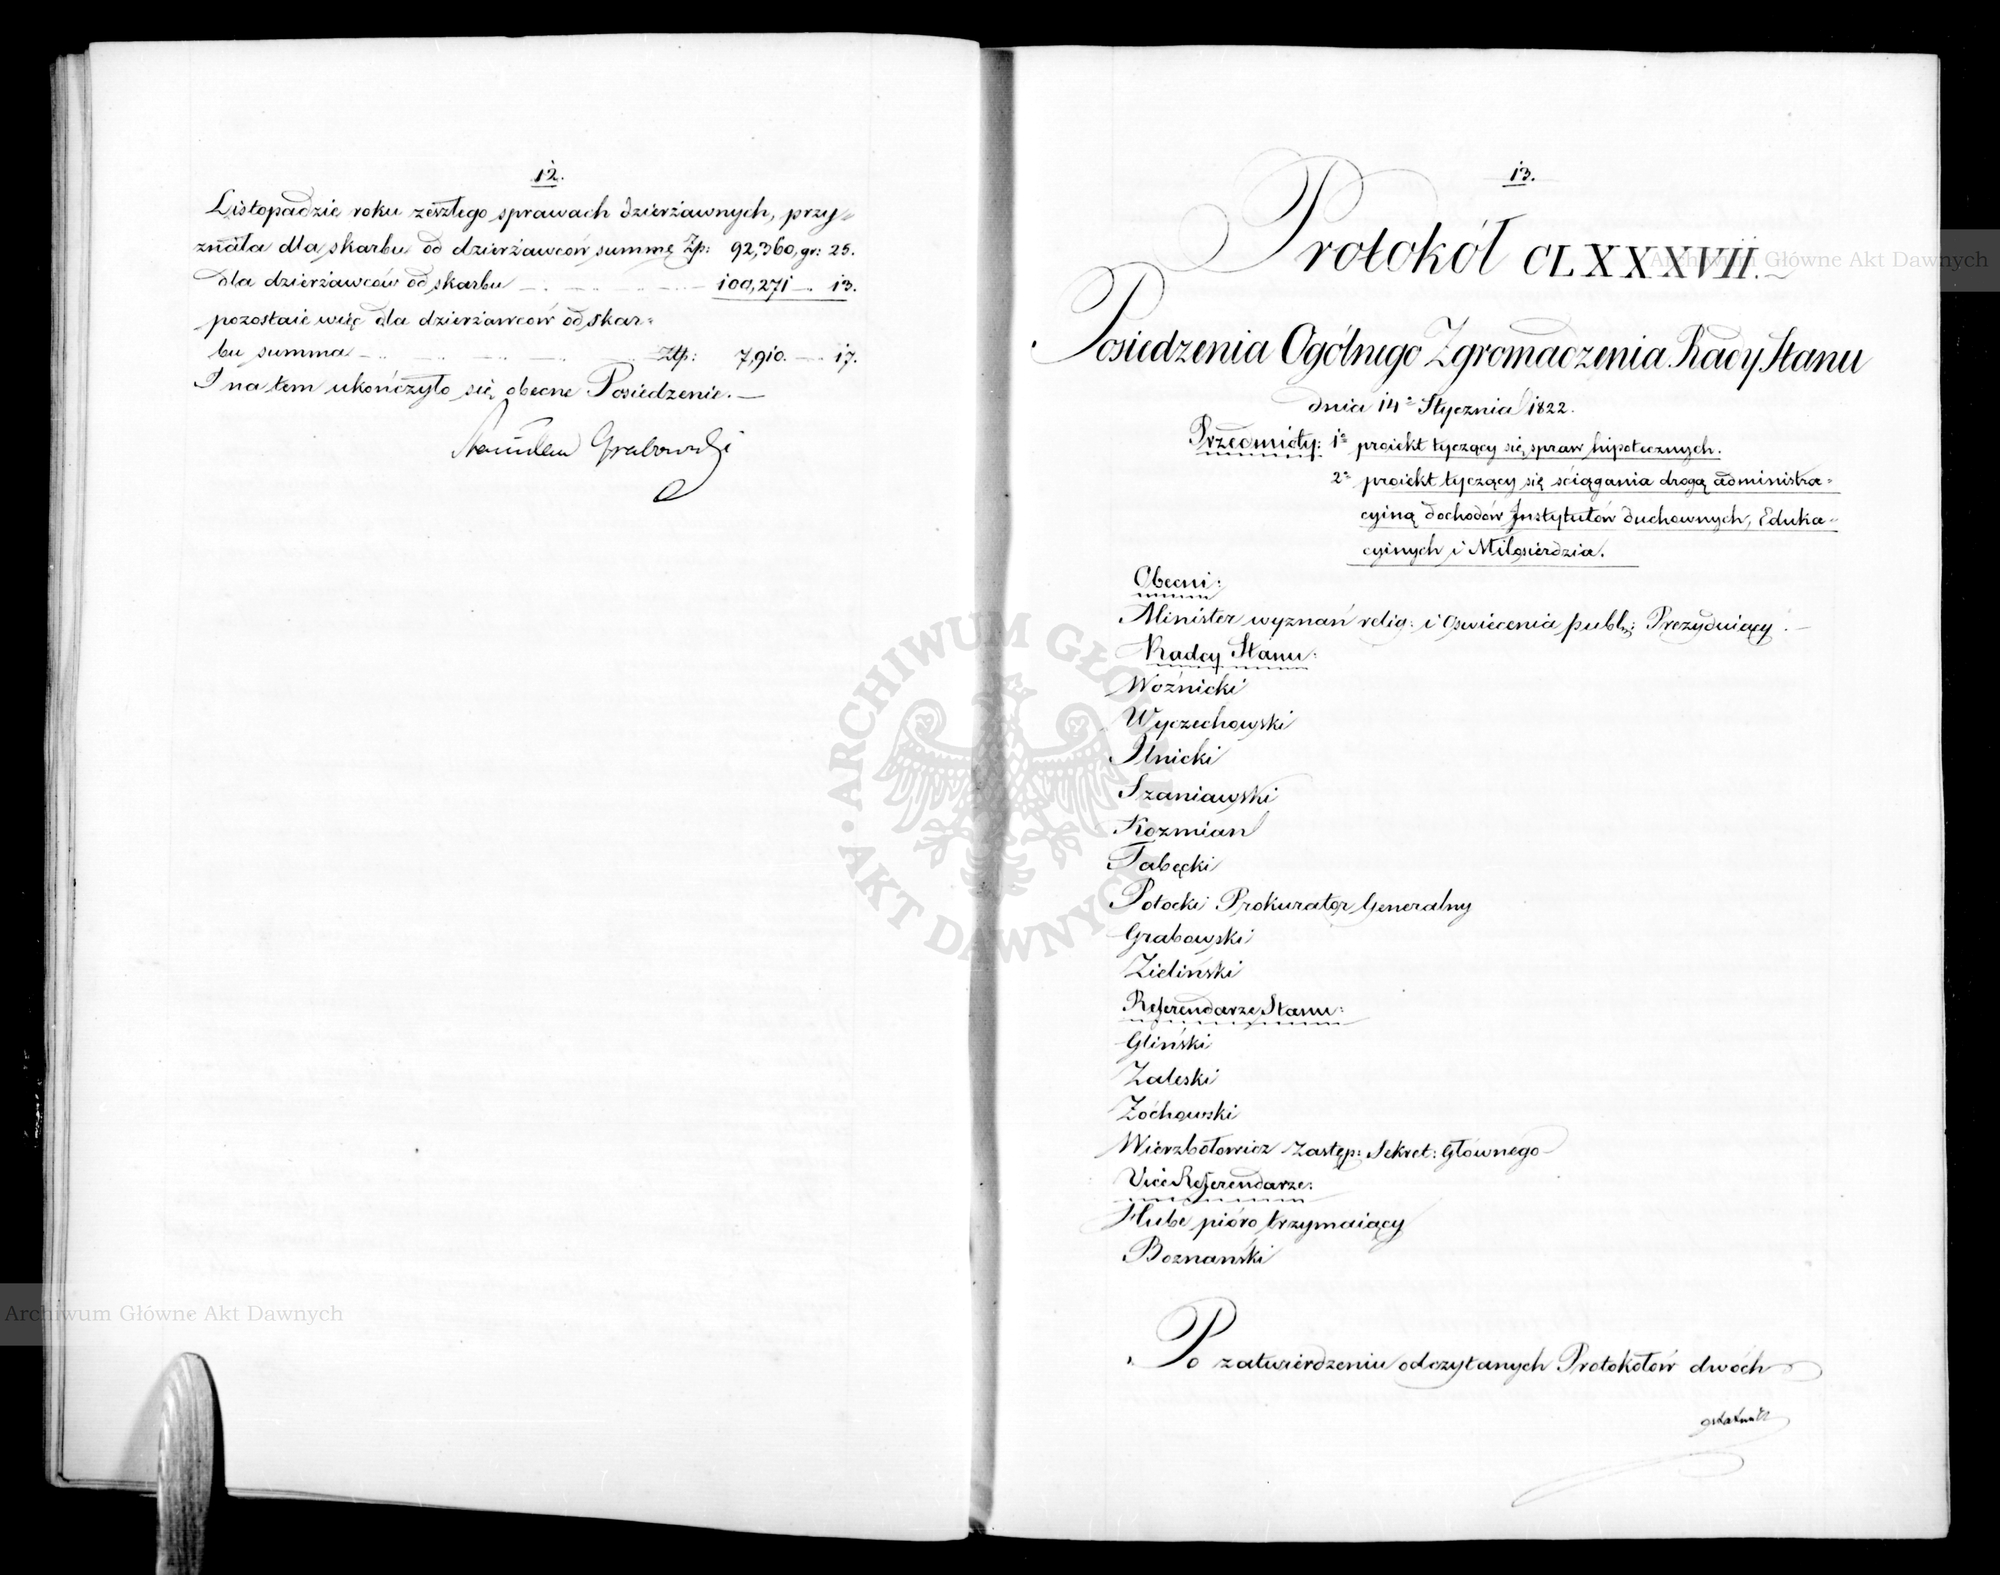 12.
Listopadzie roku zeszłego sprawach dzierżawnych, przy-
znała dla skarbu od dzierżawców summę Zp: 92,360, gr: 25.
dla dzierżawców od skarbu 100,271 13.
pozostaie więc dla dzierżawców od skar-
bu summa Złp: 7,910. 17.
I na tem ukończyło się obecne Posiedzenie. —
Stanisław Grabowski
13.
Protokół CLXXXVII.
Posiedzenia Ogólnego Zgromadzenia Rady Stanu
dnia 14º Stycznia 1822.
Przedmioty: 1º proiekt tyczący się spraw hipotecznych.
2º proiekt tyczący się ściągania drogą administra-
cyiną dochodów Instytutów duchownych, Eduka-
cyinych i Miłosierdzia.
Obecni:
Minister wyznań relig: i oświecenia publ: Prezyduiący. —
Radcy Stanu:
Woźnicki
Wyczechowski
Ilnicki
Szaniawski
Kozmian
Tabęcki
Potocki Prokurator Generalny
Grabowski
Zieliński
Referendarze Stanu:
Gliński
Zaleski
Zochowski
Wierzbołowicz zastęp: Sekret: Głównego
Vice Referendarze:
Hube pióro trzymaiący
Boznański
Po zatwierdzeniu odczytanych Protokołów dwóch
ostatnich
Archiwum Główne Akt Dawnych
ARCHIWUM GŁÓWNE AKT DAWNYCH
Archiwum Główne Akt Dawnych